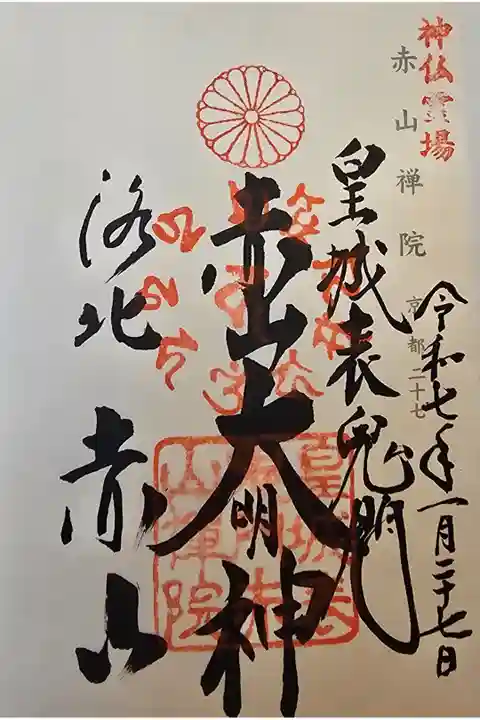 神仏霊場
赤山禅院
京都二十七
令和七年一月二十七日
皇城表鬼門
赤山大明神
洛北 赤山